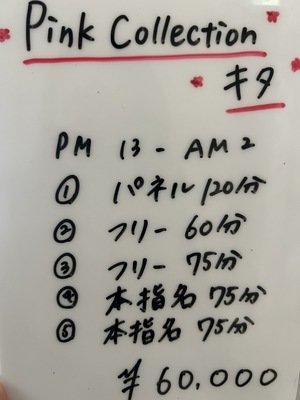 Pink Collection
キタ
PM 13 - AM 2
① パネル 120分
② フリー 60分
③ フリー 75分
④ 本指名 75分
⑤ 本指名 75分
¥60,000